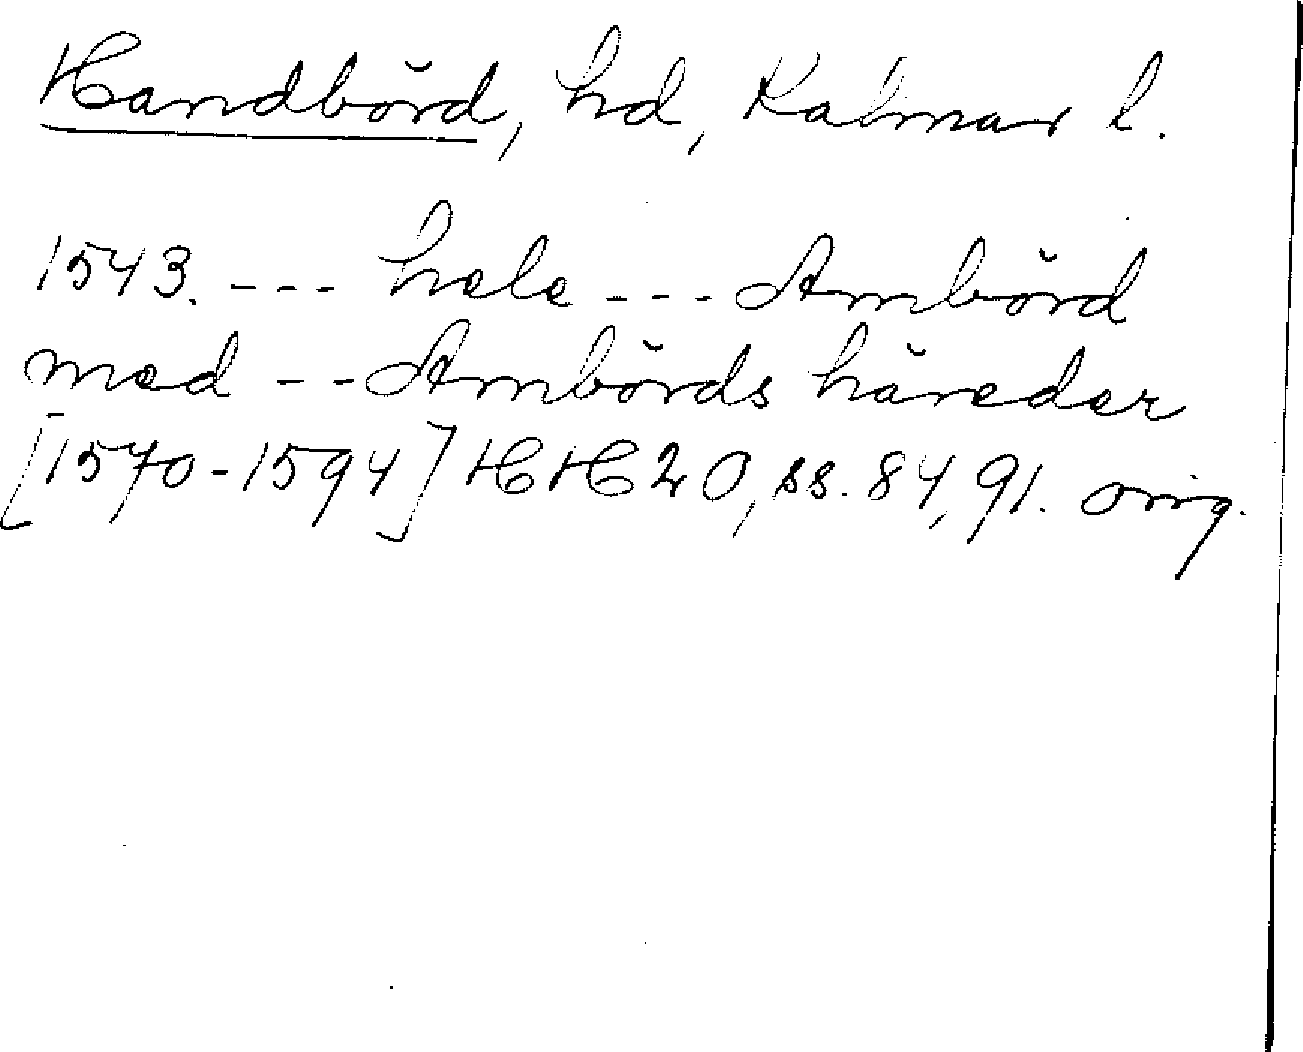 Handbörd, hd, Kalmar l.
1543. --- hele --- Ambörd
med -- Ambörds häreder
[1570-1594] HH 20, ss. 84, 91. orig.